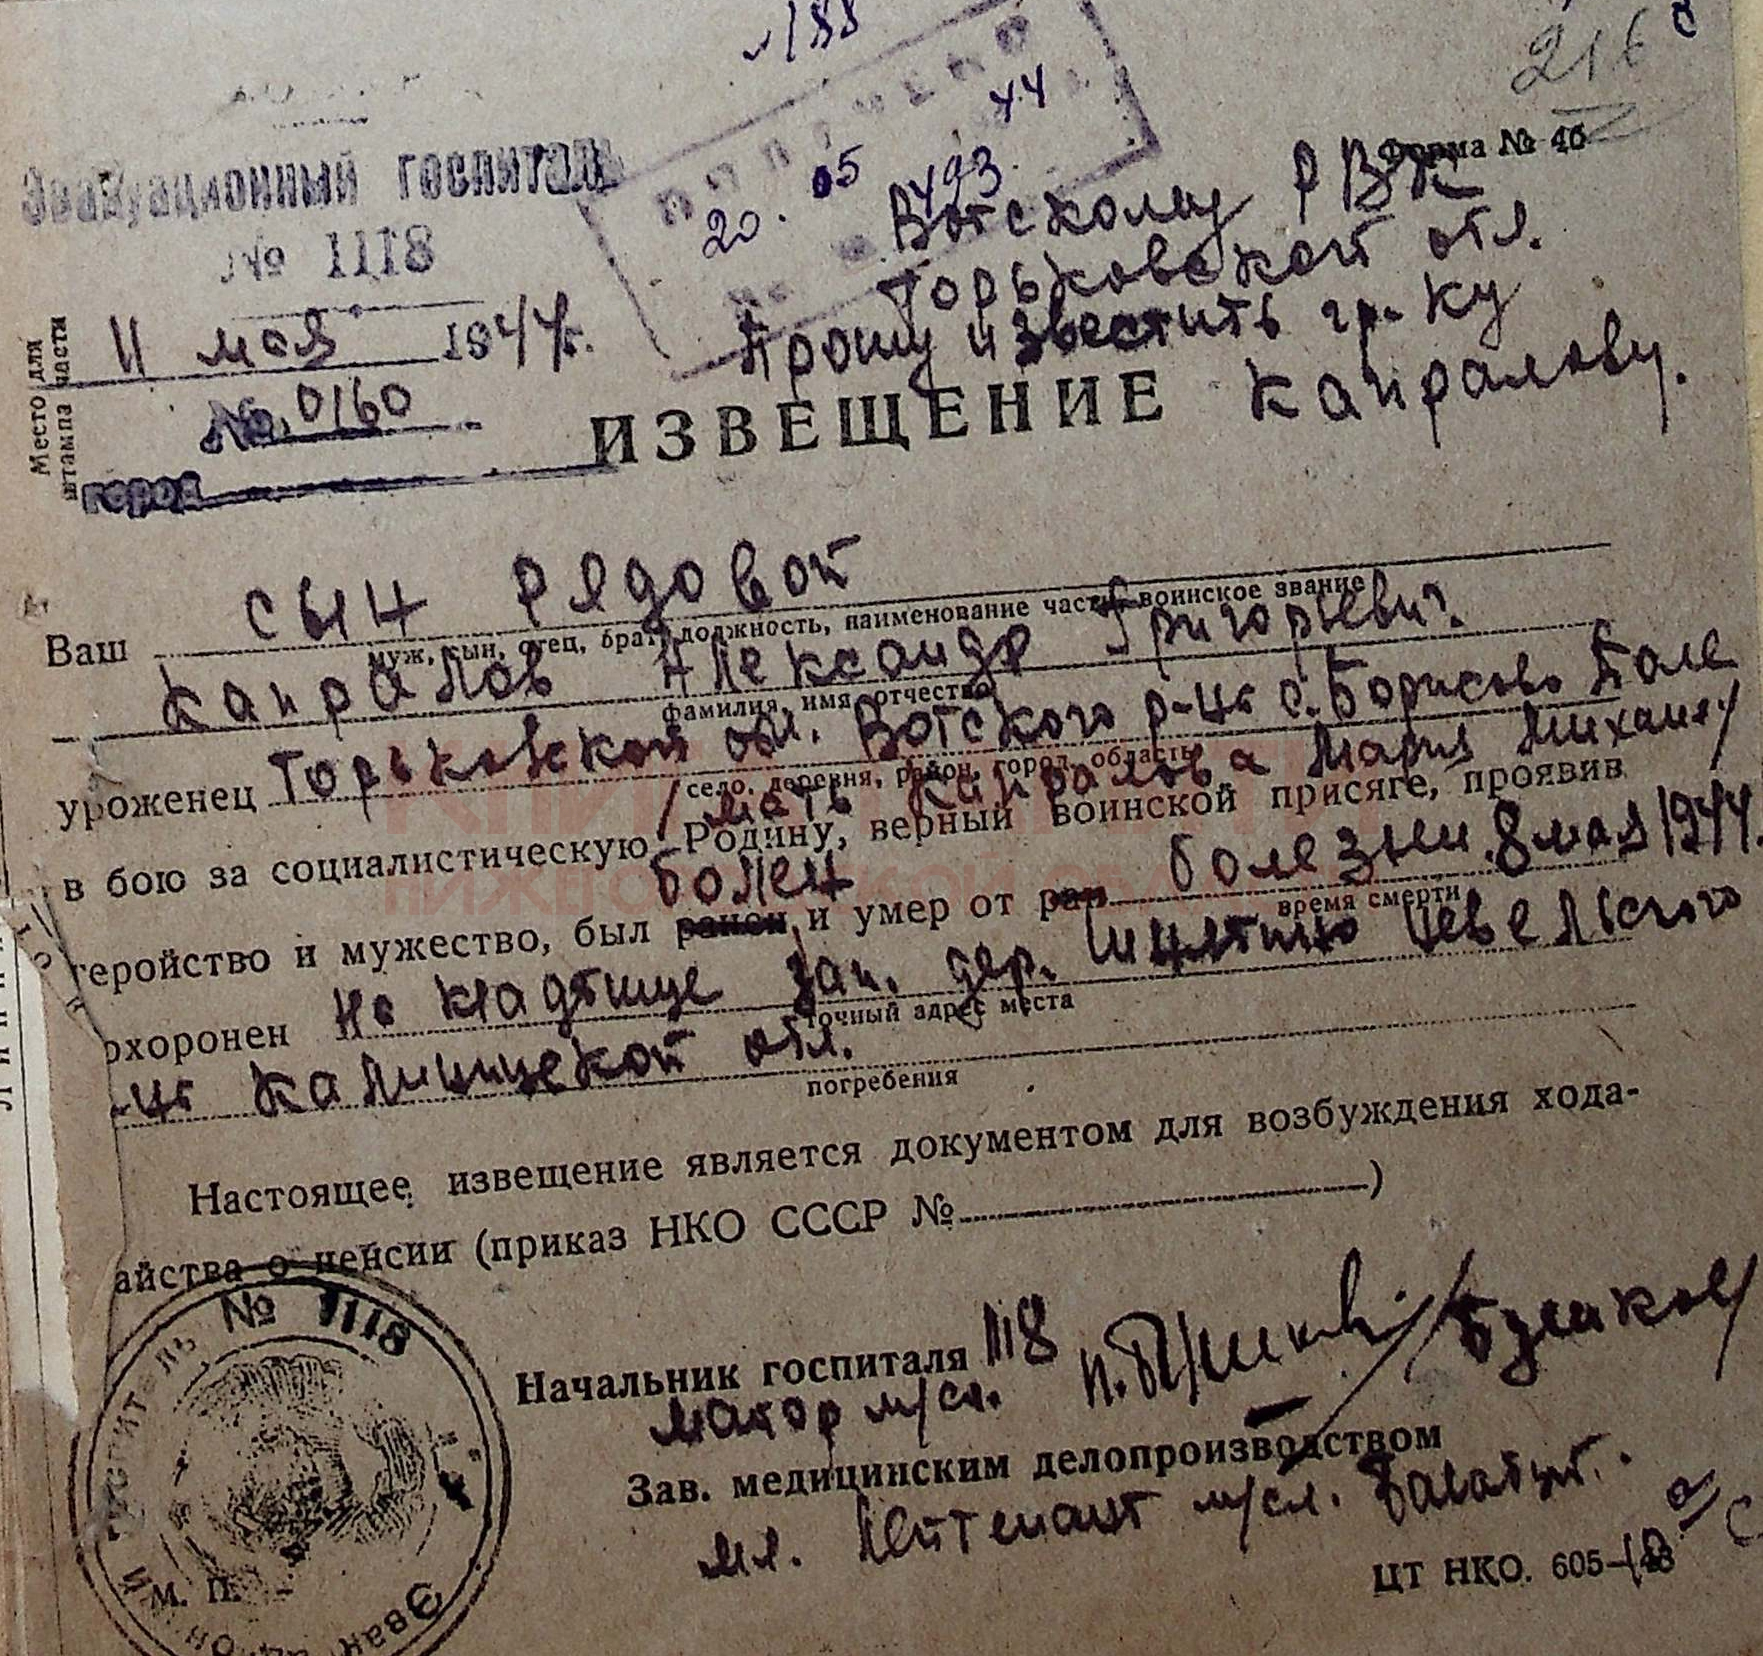 №188
216
Форма № 4б
Эвакуационный госпиталь
№ 1118
ПОЛУЧЕНО
20. 05 44
493
Вотскому РВК
Горьковской отл.
11 мая 1944г.
Прошу известить гр-ку
Место для
штампа части
№ 0160
ИЗВЕЩЕНИЕ Капралову.
город
Ваш сын рядовой
муж, сын, отец, брат, должность, наименование части, воинское звание
Капралов Александр Григорьевич.
фамилия, имя, отчество
уроженец Горьковской отл. Вотского р-на с. Борисово Поле
село, деревня, район, город, область
/мать Капралова Мария Михаил/
в бою за социалистическую Родину, верный воинской присяге, проявив
болен
геройство и мужество, был ранен и умер от ран болезни. 8 мая 1944.
время смерти
охоронен на кладбище зап. дер. Невельского
точный адрес места
-на Калининской отл.
погребения
Настоящее извещение является документом для возбуждения хода-
айства о пенсии (приказ НКО СССР №)
№ 1118
Начальник госпиталя 1118
майор м/сл. /Бушков/
Зав. медицинским делопроизводством
мл. Лейтенант м/сл.
М. П.
ЦТ НКО. 605—43